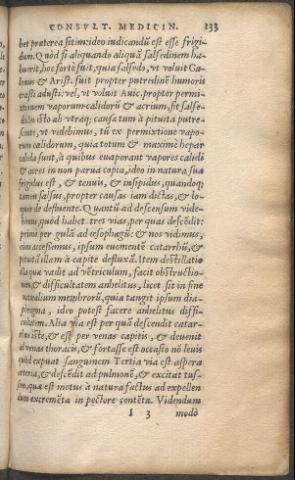 CONSVLT. MEDICIN. 133
bet præterea sitim: ideo iudicandū est esse frigi-
dum. Quòd si aliquando aliquā salsedinem ha-
buerit, hoc fortè fuit, quia salsedo, vt voluit Ga-
lenus & Arist. fuit propter putredinē humoris
crassi adusti: vel, vt voluit Auic. propter permi-
xtionem vaporum calidorū & acrium, fit salse-
do in isto ab vtraq; causa tum à pituita putre-
scente, vt videbimus, tū ex permixtione vapo-
rum calidorum, quia totum & maximè hepar
calida sunt, à quibus euaporant vapores calidi
& acres in non parua copia, ideo in natura sua
frigidus est, & tenuis, & insipidus, quandoq;
tamen salsus, propter causas iam dictas, & lo-
mur de defluente. Quantū ad descensum vide-
bimus, quòd habet tres vias, per quas descēdit:
primò per gulā ad œsophagū: & nos vidimus,
cum accessimus, ipsum euomentē catarrhū, &
pituitā illam à capite defluxā. Item destillatio
illa quæ vadit ad vētriculum, facit obstructio-
nes, & difficultatem anhelitus, licet sit in fine
naturalium membrorū, quia tangit ipsum dia-
phragma, ideo potest facere anhelitus diffi-
cultatem. Alia via est per quā descendit catar-
rhus iste, & est per venas capitis, & deuenit
ad venas thoracis, & fortasse est occasio nō leuis
quòd expuat sanguinem Tertia via est aspera
arteria, & descēdit ad pulmonē, & excitat tus-
sim, quæ est motus à natura factus ad expellen
dum excremēta in pectore contēta. Videndum
I 3 modò